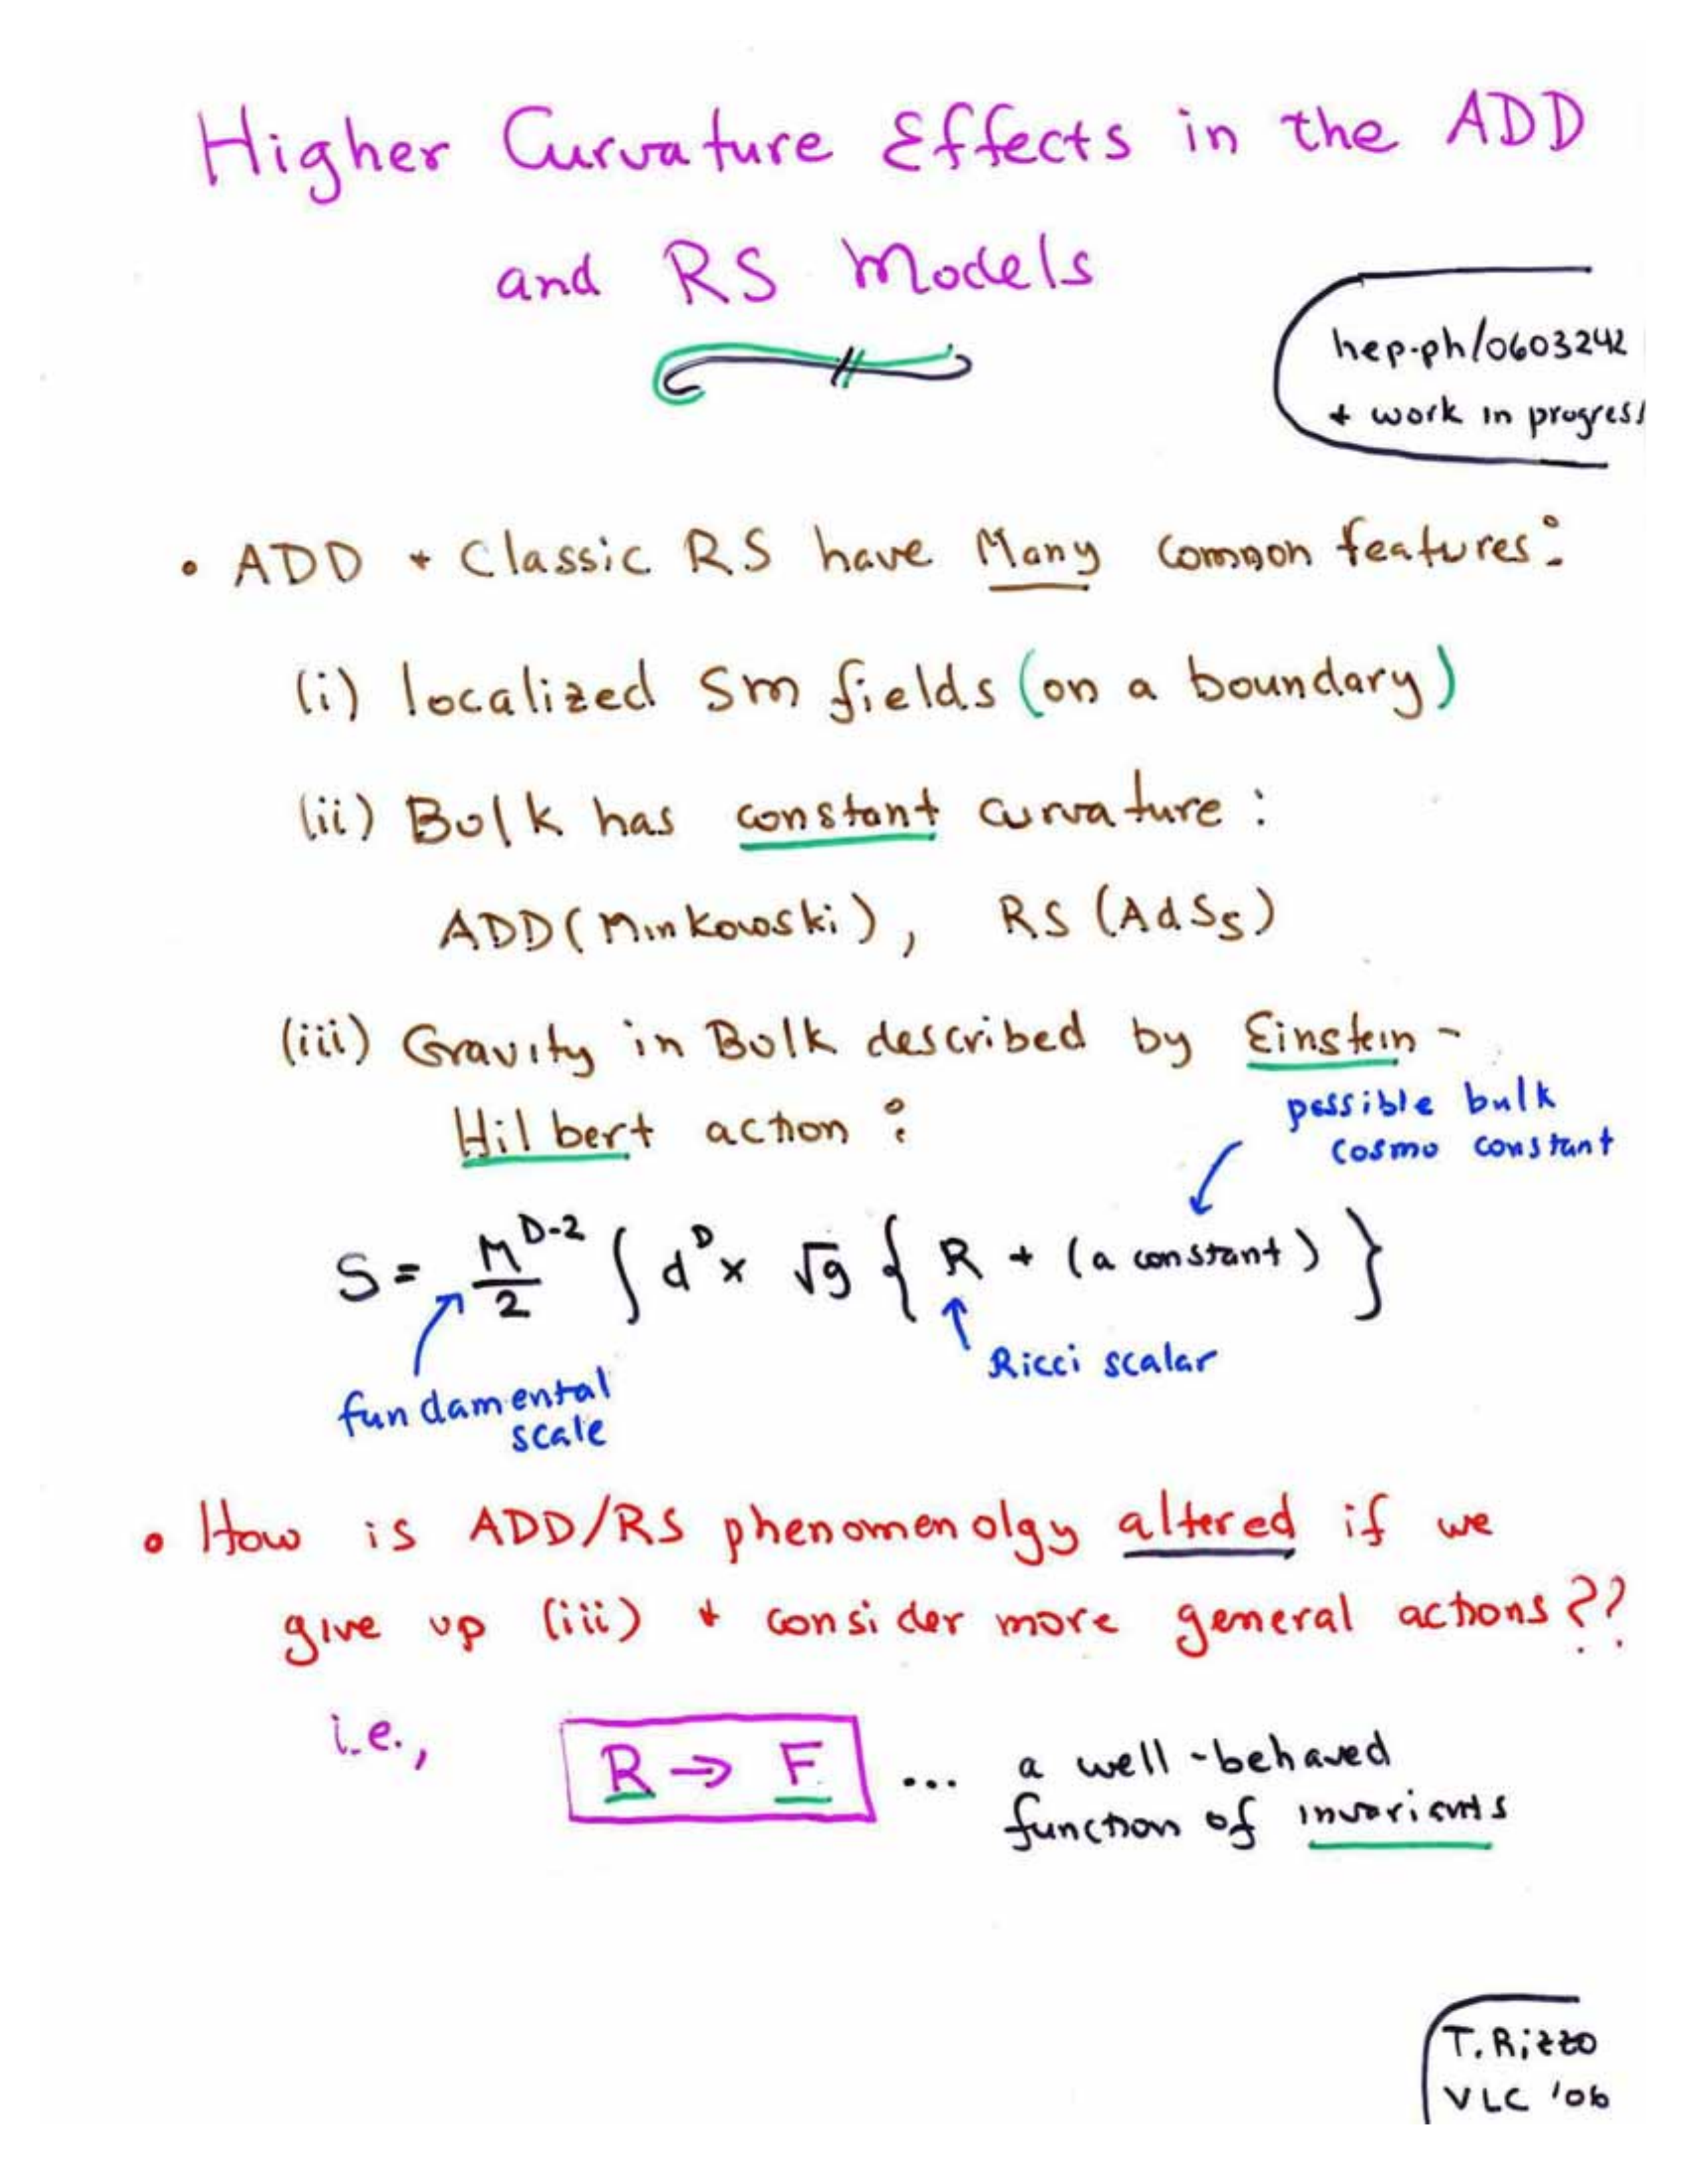 Higher Curvature Effects in the ADD
and RS Models
hep-ph/0603242
+ work in progress
• ADD + Classic RS have Many common features:
(i) localized SM fields (on a boundary)
(ii) Bulk has constant curvature:
ADD (Minkowski), RS (AdS₅)
(iii) Gravity in Bulk described by Einstein-
Hilbert action:
possible bulk
cosmo constant
S = M^{D-2}/2 ∫ d^D x √g { R + (a constant) }
Ricci scalar
fundamental
scale
• How is ADD/RS phenomenolgy altered if we
give up (iii) + consider more general actions??
i.e., R → F ... a well-behaved
function of invariants
T. Rizzo
VLC '06